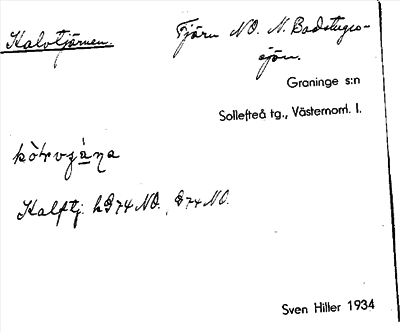 Kalvtjärnen.
Tjärn NO. N. Badstugusjön.
Graninge s:n
Sollefteå tg., Västernorrl. l.
Kalftj. h974 NO., 974 NO.
Sven Hiller 1934